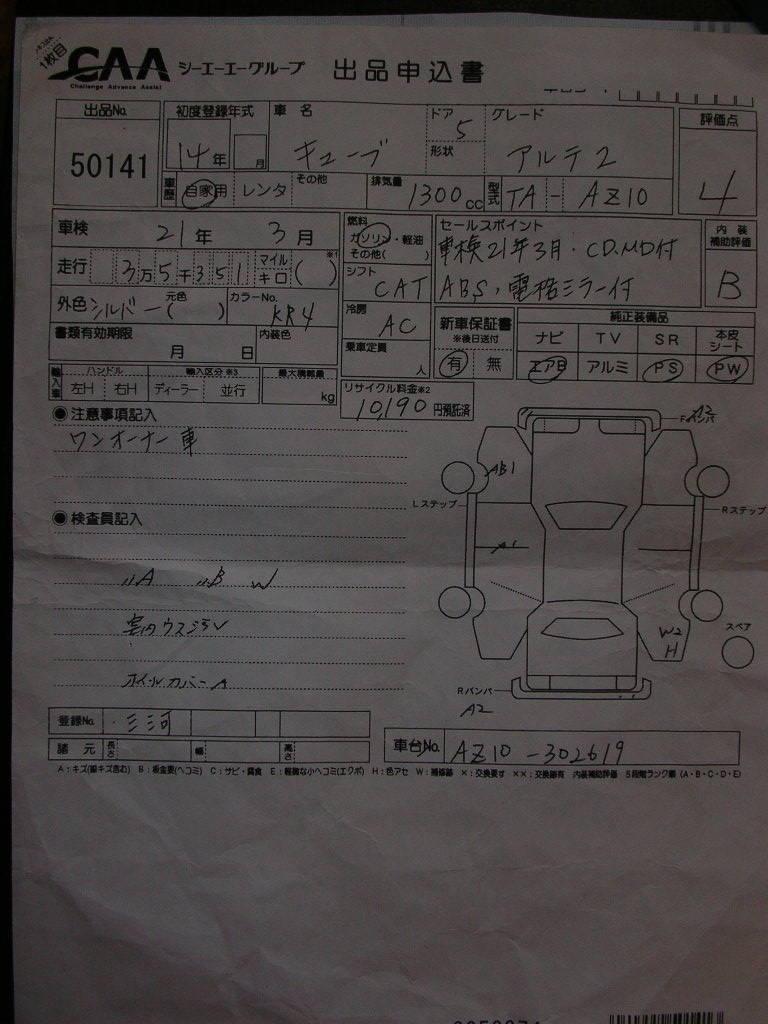 1枚目
CAA シーエーエーグループ 出品申込書
Challenge Advance Assist
出品No. 初度登録年式 車名 ドア 5 グレード 評価点
50141 14年 月 キューブ 形状 アルテ2 4
車歴 自家用 レンタ その他 排気量 1300cc 型式 TA - AZ10
車検 21年 3月 燃料 ガソリン・軽油 その他( ) セールスポイント 内装補助評価
車検21年3月・CD.MD付
走行 3万5千351 マイル キロ ( ) ※1 シフト CAT ABS、電格ミラー付 B
外色 シルバー 元色 ( ) カラーNo. KR4 冷房 AC 新車保証書 ※後日送付 純正装備品
ナビ TV SR 本皮シート
書類有効期限 月 日 内装色 乗車定員 人 有 無 エアB アルミ PS PW
輸入車 ハンドル 左H 右H 輸入区分※3 ディーラー 並行 最大積載量 kg リサイクル料金※2 10,190 円預託済
●注意事項記入
ワンオーナー車
Fバンパ
AB1
Lステップ Rステップ
●検査員記入
A1
〃A 〃B W
室内ウスヨゴレ
スペア
W2
H
ホイールカバーA
Rバンパ
A2
登録No. 三河
諸元 長さ 幅 高さ 車台No. AZ10-302619
A:キズ(線キズ含む) B:板金要(ヘコミ) C:サビ・腐食 E:軽微な小ヘコミ(エクボ) H:色アセ W:補修跡 ×:交換要す ××:交換跡有 内装補助評価 5段階ランク順(A・B・C・D・E)